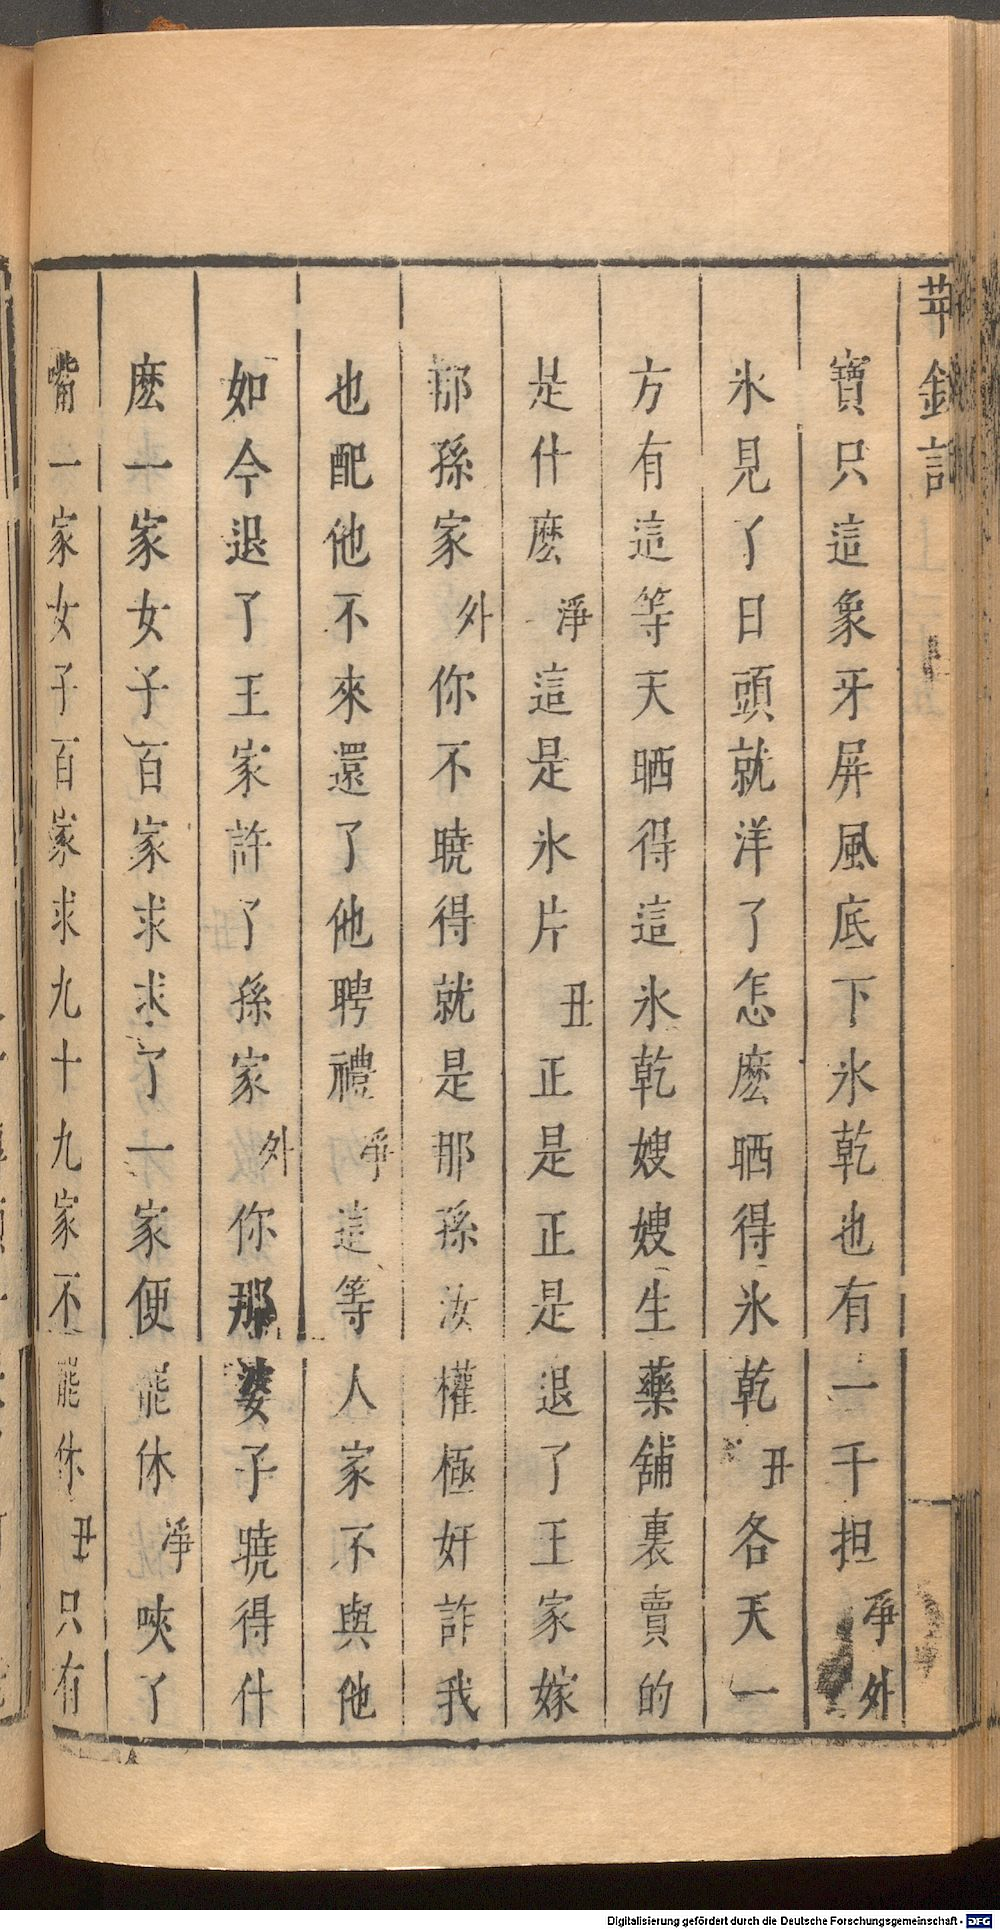 荆釵記
寶只這象牙屏風底下氷乾也有一千担淨外
氷見了日頭就洋了怎麽晒得氷乾丑各天一
方有這等天晒得這氷乾嫂嫂生藥舖裏賣的
是什麽淨這是氷片丑正是正是退了王家嫁
那孫家外你不曉得就是那孫汝權極奸詐我
也配他不來還了他聘禮淨這等人家不與他
如今退了王家許了孫家外你那婆子曉得什
麽一家女子百家求求了一家便能休淨唊了
嘴一家女子百家求九十九家不能休丑只有
Digitalisierung gefördert durch die Deutsche Forschungsgemeinschaft - DFG